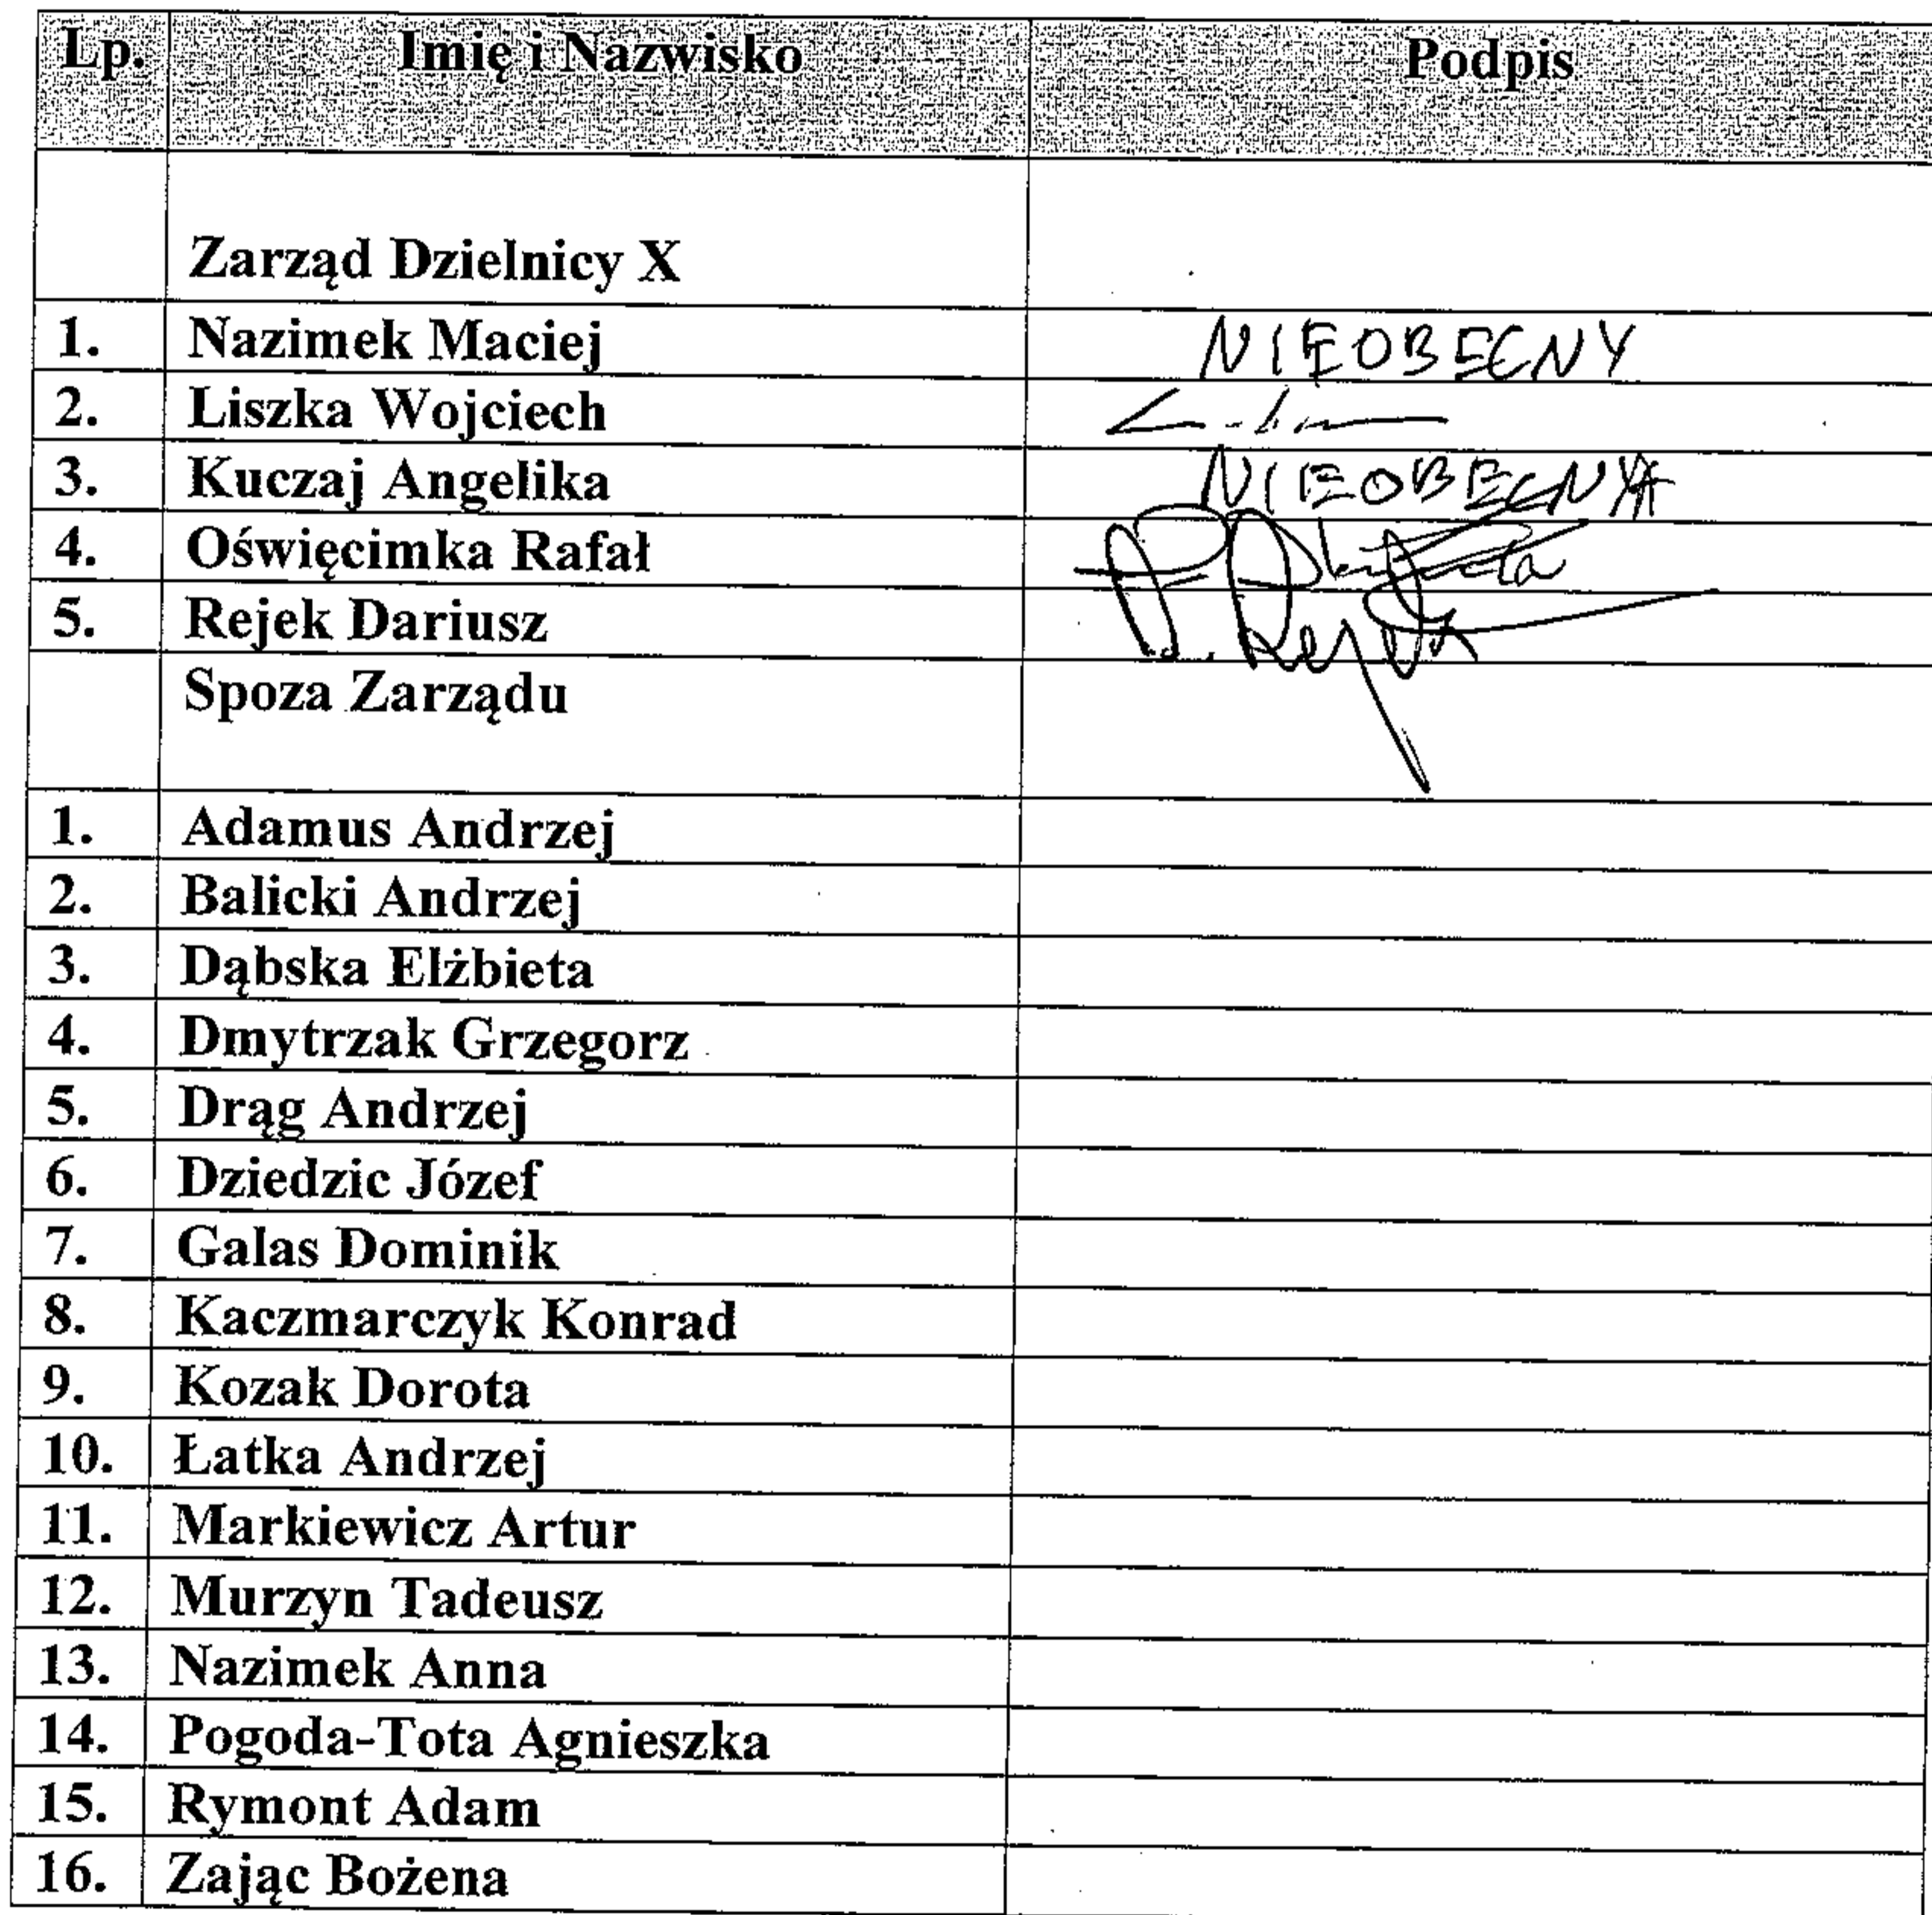 Lp. Imię i Nazwisko Podpis
Zarząd Dzielnicy X
1. Nazimek Maciej NIEOBECNY
2. Liszka Wojciech
3. Kuczaj Angelika NIEOBECNA
4. Oświęcimka Rafał
5. Rejek Dariusz
Spoza Zarządu
1. Adamus Andrzej
2. Balicki Andrzej
3. Dąbska Elżbieta
4. Dmytrzak Grzegorz
5. Drąg Andrzej
6. Dziedzic Józef
7. Galas Dominik
8. Kaczmarczyk Konrad
9. Kozak Dorota
10. Łatka Andrzej
11. Markiewicz Artur
12. Murzyn Tadeusz
13. Nazimek Anna
14. Pogoda-Tota Agnieszka
15. Rymont Adam
16. Zając Bożena